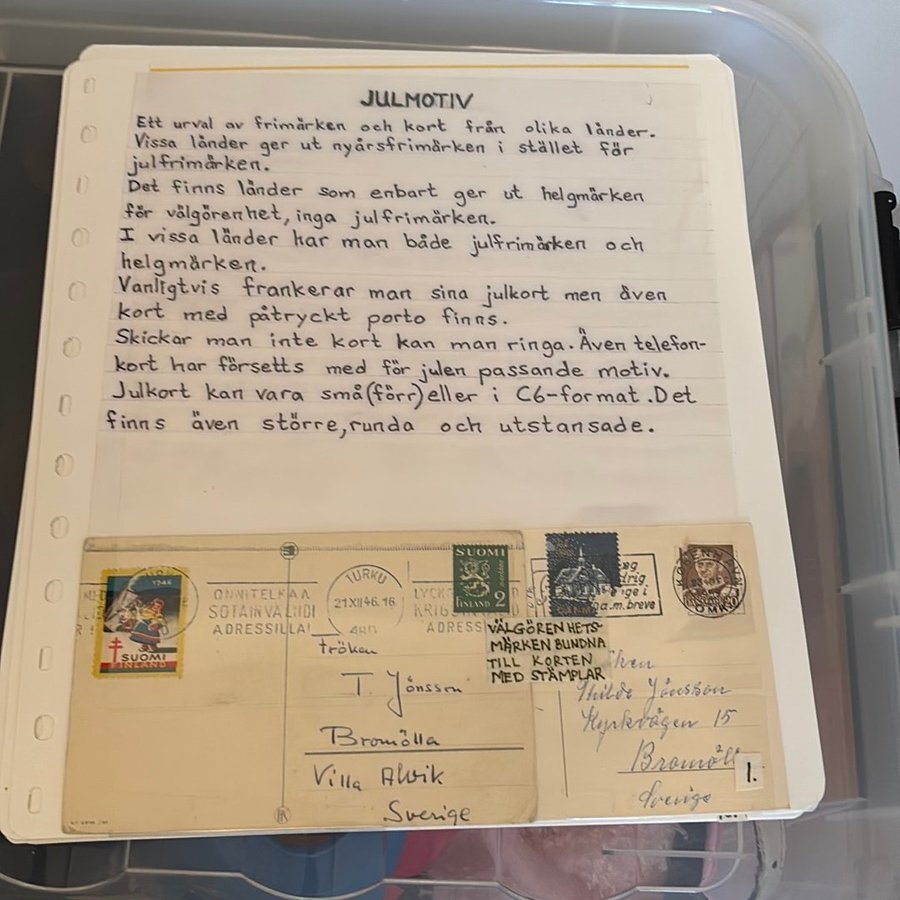 JULMOTIV
Ett urval av frimärken och kort från olika länder.
Vissa länder ger ut nyårsfrimärken i stället för
julfrimärken.
Det finns länder som enbart ger ut helgmärken
för välgörenhet, inga julfrimärken.
I vissa länder har man både julfrimärken och
helgmärken.
Vanligtvis frankerar man sina julkort men även
kort med påtryckt porto finns.
Skickar man inte kort kan man ringa. Även telefon-
kort har försetts med för julen passande motiv.
Julkort kan vara små (förr) eller i C6-format. Det
finns även större, runda och utstansade.
1946
SUOMI
FINLAND
ONNITELKAA
SOTAINVALIDI
ADRESSILLA!
TURKU
21.XII.46.16
ÅBO
LYCK
KRIG
ADRESS
SUOMI
FINLAND 2
fröken
T. Jönsson
Bromölla
Villa Alvik
Sverige
VÄLGÖRENHETS-
MÄRKEN BUNDNA
TILL KORTEN
MED STÄMPLAR
a.m. breve
KØBENHAVN
OMK
Hilda Jönsson
Kyrkvägen 15
Bromöll
Sverige
1.